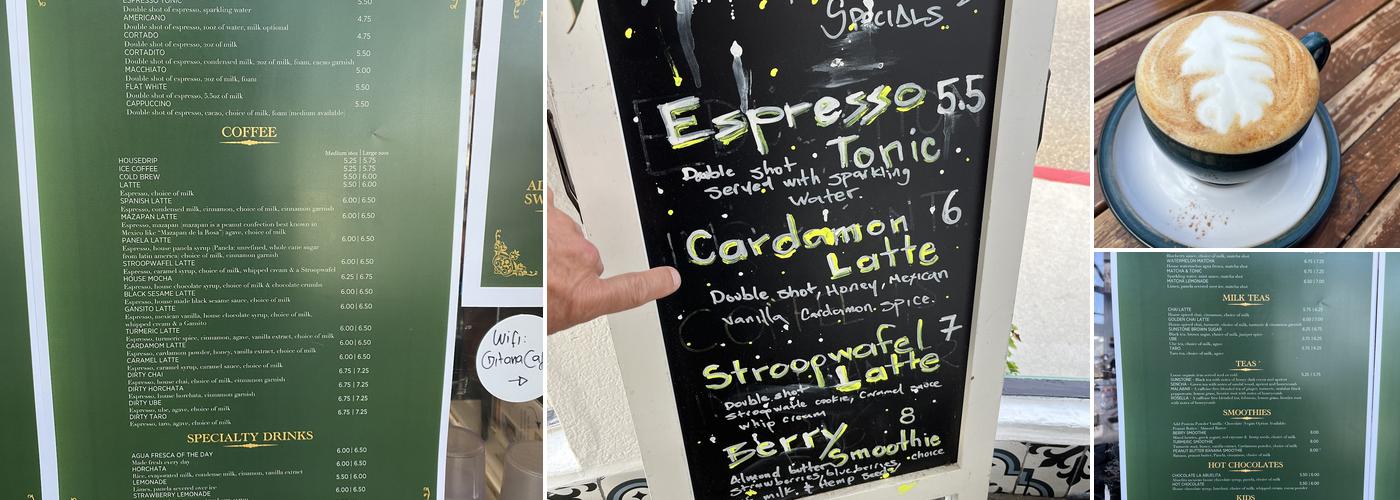 ESPRESSO TONIC 5.50
Double shot of espresso, sparkling water
AMERICANO 4.75
Double shot of espresso, 10oz of water, milk optional
CORTADO 4.75
Double shot of espresso, 2oz of milk
CORTADITO 5.50
Double shot of espresso, condensed milk, 2oz of milk, foam, cacao garnish
MACCHIATO 5.00
Double shot of espresso, 2oz of milk, foam
FLAT WHITE 5.50
Double shot of espresso, 5.5oz of milk
CAPPUCCINO 5.50
Double shot of espresso, cacao, choice of milk, foam [medium available]
COFFEE
Medium 16oz | Large 20oz
HOUSEDRIP 5.25 | 5.75
ICE COFFEE 5.25 | 5.75
COLD BREW 5.50 | 6.00
LATTE 5.50 | 6.00
Espresso, choice of milk
SPANISH LATTE 6.00 | 6.50
Espresso, condensed milk, cinnamon, choice of milk, cinnamon garnish
MAZAPAN LATTE 6.00 | 6.50
Espresso, mazapan [mazapan is a peanut confection best known in
Mexico like "Mazapan de la Rosa"] agave, choice of milk
PANELA LATTE 6.00 | 6.50
Espresso, house panela syrup [Panela: unrefined, whole cane sugar
from latin america] choice of milk, cinnamon garnish
STROOPWAFEL LATTE 6.00 | 6.50
Espresso, caramel syrup, choice of milk, whipped cream & a Stroopwafel
HOUSE MOCHA 6.25 | 6.75
Espresso, house chocolate syrup, choice of milk & chocolate crumbs
BLACK SESAME LATTE 6.00 | 6.50
Espresso, house made black sesame sauce, choice of milk
GANSITO LATTE 6.00 | 6.50
Espresso, mexican vanilla, house chocolate syrup, choice of milk,
whipped cream & a Gansito
TURMERIC LATTE 6.00 | 6.50
Espresso, turmeric spice, cinnamon, agave, vanilla extract, choice of milk
CARDAMOM LATTE 6.00 | 6.50
Espresso, cardamom powder, honey, vanilla extract, choice of milk
CARAMEL LATTE 6.00 | 6.50
Espresso, caramel syrup, caramel sauce, choice of milk
DIRTY CHAI 6.75 | 7.25
Espresso, house chai, choice of milk, cinnamon garnish
DIRTY HORCHATA 6.75 | 7.25
Espresso, house horchata, cinnamon garnish
DIRTY UBE 6.75 | 7.25
Espresso, ube, agave, choice of milk
DIRTY TARO 6.75 | 7.25
Espresso, taro, agave, choice of milk
SPECIALTY DRINKS
AGUA FRESCA OF THE DAY 6.00 | 6.50
Made fresh every day
HORCHATA 6.00 | 6.50
Rice, evaporated milk, condense milk, cinnamon, vanilla extract
LEMONADE
Limes, panela severed over ice 6.00 | 6.50
STRAWBERRY LEMONADE
Wifi:
GitanaCaf
Specials
Espresso 5.5
Tonic
Double shot
Served with sparkling
water.
Cardamon 6
Latte
Double shot, Honey, Mexican
vanilla Cardamon. Spice.
Stroopwafel 7
Latte
Double shot
Stroopwafle cookie, Caramel sauce
whip cream
Berry 8
Smoothie
Almond butter choice
Strawberries, blueberries
milk. & Hemp Seeds
WATERMELON MATCHA 6.75 | 7.25
MATCHA & TONIC
MATCHA LEMONADE 6.50 | 7.00
MILK TEAS
CHAI LATTE 5.75 | 6.25
GOLDEN CHAI LATTE 6.00 | 7.00
SUNSTONE BROWN SUGAR 6.25 | 6.75
UBE 5.75 | 6.25
TARO 5.75 | 6.25
TEAS
5.25 | 5.75
SMOOTHIES
BERRY SMOOTHIE 8.00
TURMERIC SMOOTHIE 8.00
PEANUT BUTTER BANANA SMOOTHIE 8.00
HOT CHOCOLATES
CHOCOLATE LA ABUELITA 5.50 | 6.00
HOT CHOCOLATE 5.50 | 6.00
KIDS